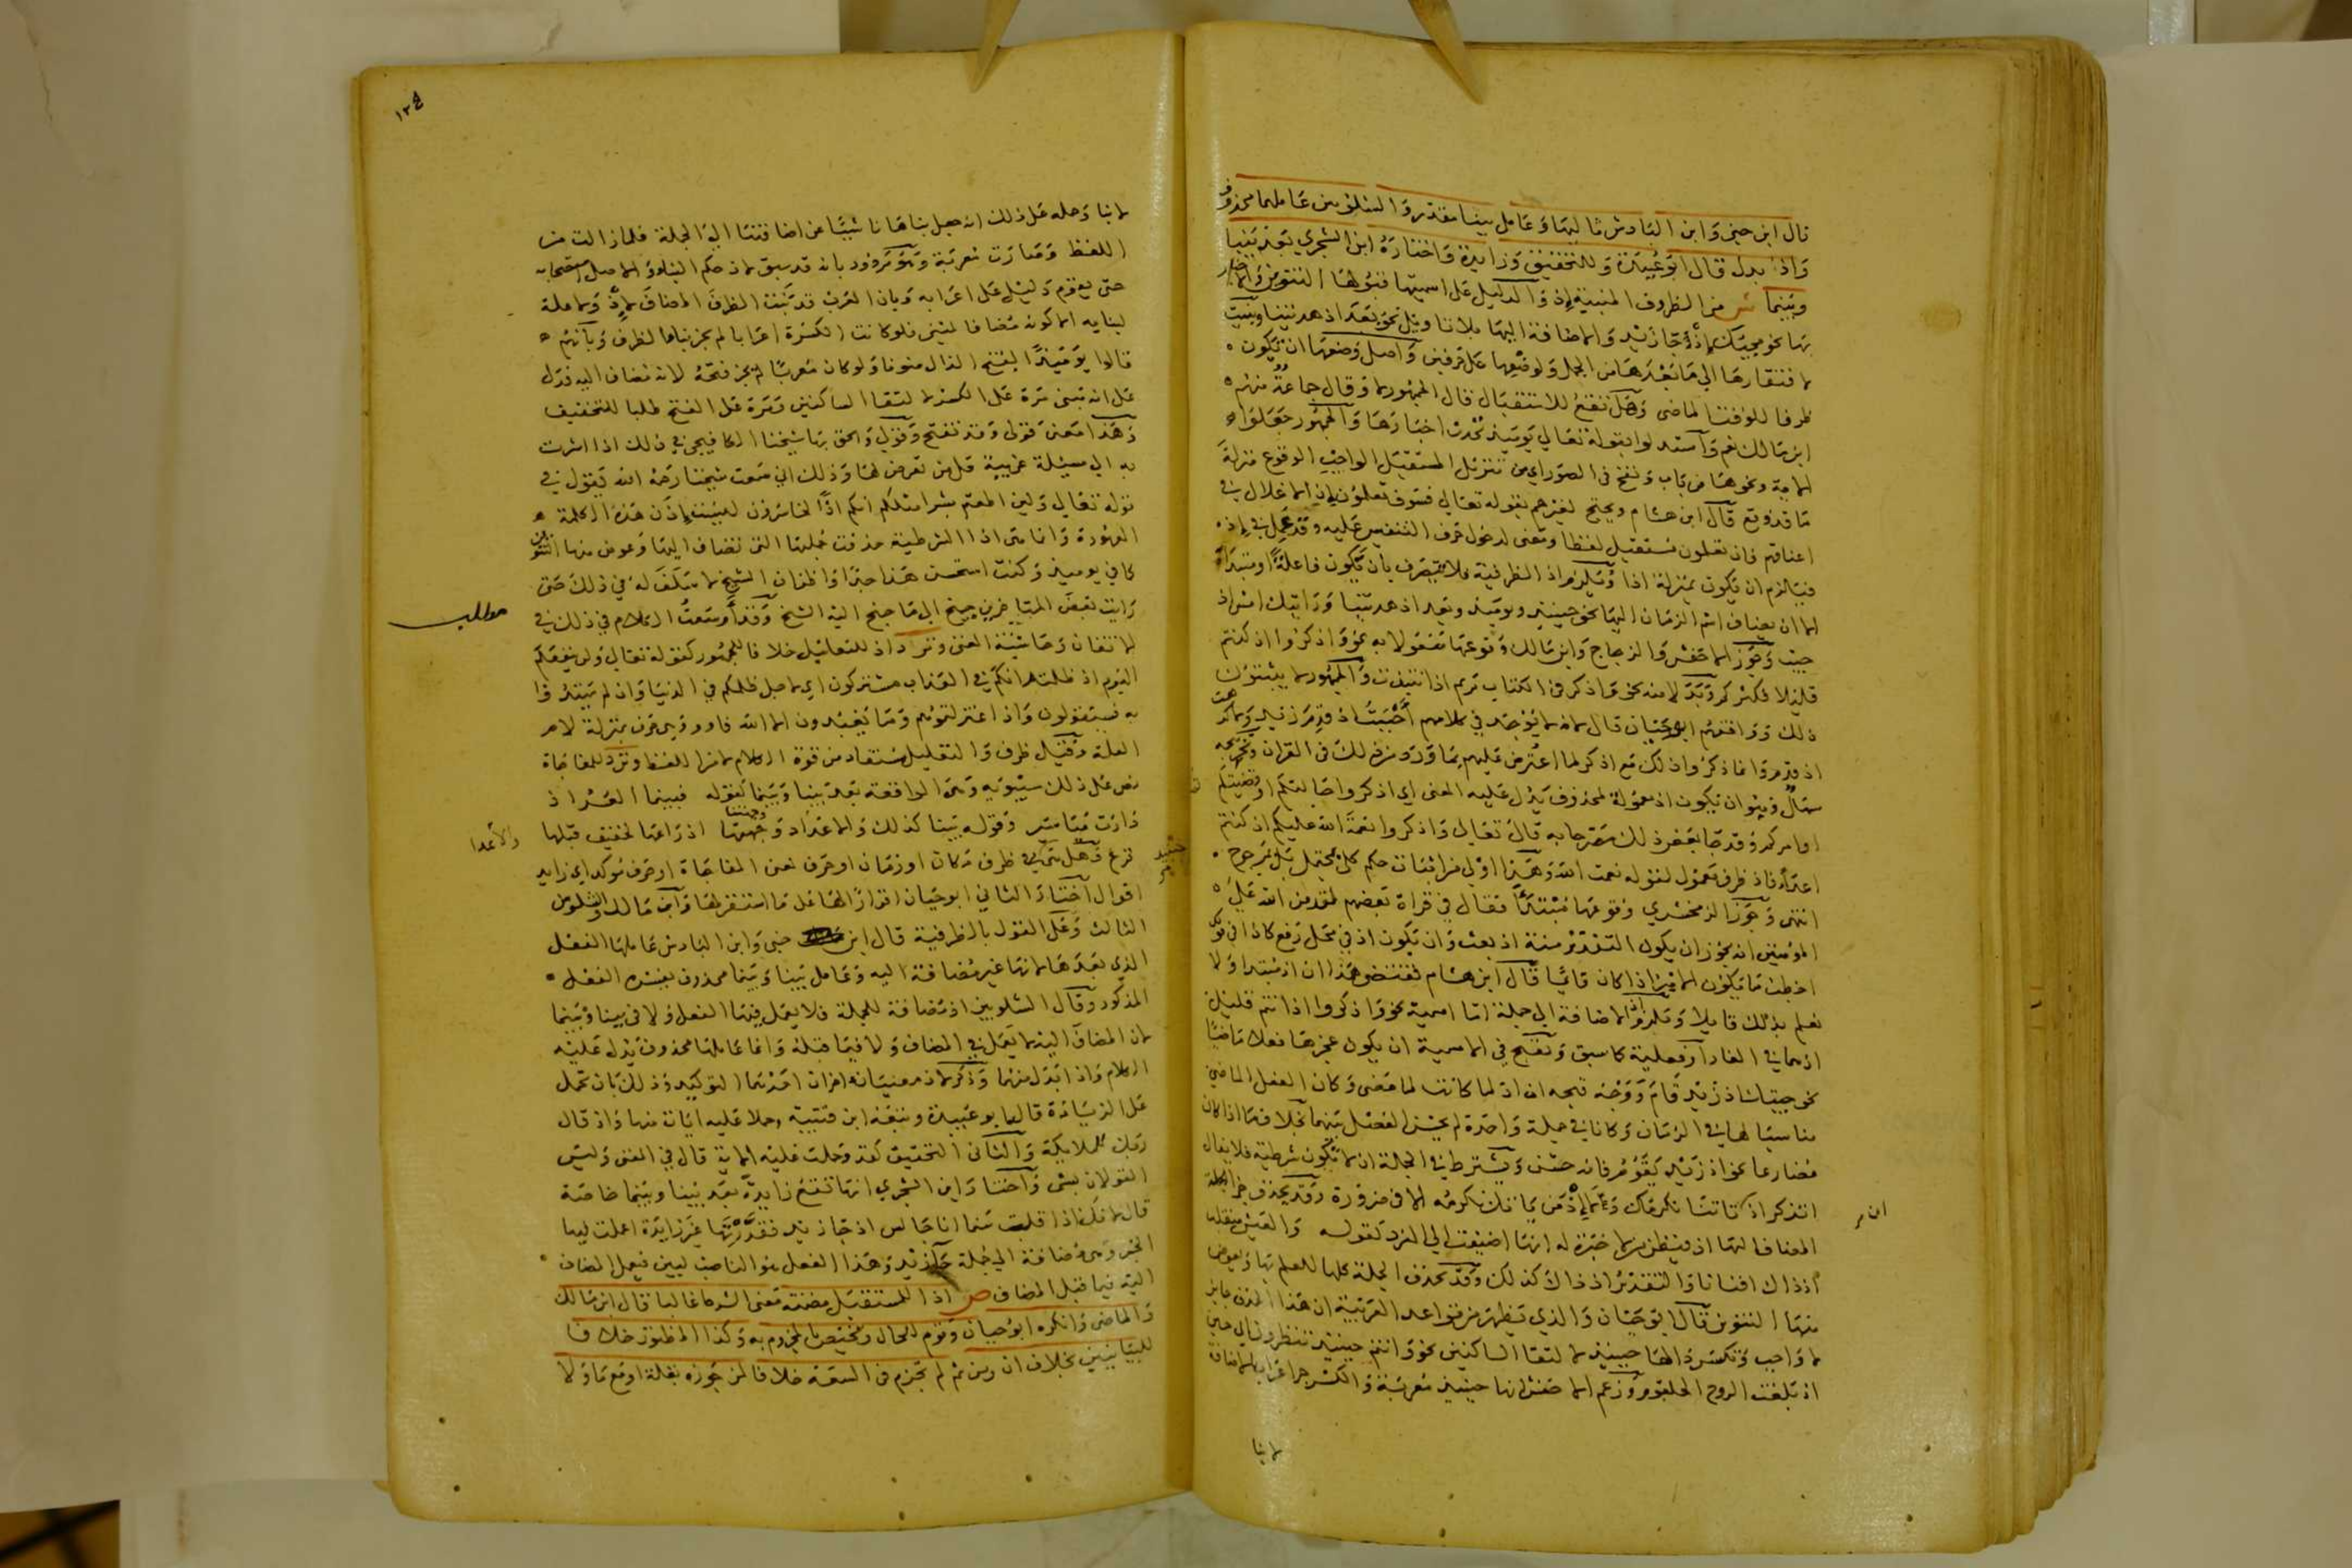 قال ابن جني وابن الباذش تاليها وعامل بينا مقدر والشلوبين عاملهما محذوف
واذ بدل قال ابو عبيدة وللتحقيق وزايدة واختاره ابن الشجري بعد بينا
وبينما ش من الظروف المبنية إذ والدليل على اسميتها قبولها التنوين والاخبار
بها نحو مجيئك إذ جا زيد والاضافة اليها بلا تاويل نحو بعد اذ هديتنا وبنيت
لافتقارها الى ما بعدها من الجمل ولوضعها على حرفين واصل وضعها ان تكون
ظرفا للوقت الماضي وهل تقع للاستقبال قال الجمهور لا وقال جماعة منهم
ابن مالك نعم واستدلوا بقوله تعالى يومئذ تحدث اخبارها والجمهور جعلوا
الاية ونحوها من باب ونفخ في الصور اي من تنزيل المستقبل الواجب الوقوع منزلة
ما قد وقع قال ابن هشام ويحتج لغيرهم بقوله تعالى فسوف تعلمون إذ الاغلال في
اعناقهم فان تعلمون مستقبل لفظا ومعنى لدخول حرف التنفيس عليه وقد عمل في إذ
فيلزم ان تكون بمنزلة اذا وتلزم اذ الظرفية فلا تتصرف بان تكون فاعلة او مبتدأة
الا ان يضاف اسم الزمان اليها نحو حينئذ ويومئذ وبعد اذ هديتنا ورايتك امس اذ
جيت وجوز الاخفش والزجاج وابن مالك وقوعها مفعولا به نحو واذكروا اذ كنتم
قليلا فكثركم وبدلا منه نحو واذكر في الكتاب مريم اذ انتبذت والجمهور لا يثبتون
ذلك ووافقهم ابو حيان قال لانه لا يوجد في كلامهم أحببت اذ قدم زيد ولا كرهت
اذ قدم وانما ذكروا ذلك مع اذكر لما اعترض عليهم بما ورد من ذلك في القران وتخريجه
سهل وهو ان تكون اذ معمولة لمحذوف يدل عليه المعنى اي اذكروا حالتكم او قضيتكم
او امركم وقد جا بعض ذلك مصرحا به قال تعالى واذكروا نعمة الله عليكم اذ كنتم
اعداء فاذ ظرف معمول لقوله نعمت الله وهذا اولى من اثبات حكم كلي بمحتمل بل بمرجوح
انتهى وجوز الزمخشري وقوعها مبتدأ فقال في قراة بعضهم لمن من الله على
المؤمنين انه يجوز ان يكون التقدير منه اذ بعث وان تكون اذ في محل رفع كاذا في قولك
اخطب ما يكون الامير اذا كان قائما قال ابن هشام فمقتضى هذا ان اذ مبتدا ولا
نعلم بذلك قايلا وتلزم اذ الاضافة الى جملة اما اسمية نحو واذكروا اذ انتم قليل
اذ هما في الغار او فعلية كما سبق وتقبح في الاسمية ان يكون عجزها فعلا ماضيا
نحو جيتك اذ زيد قام ووجه قبحه ان اذ لما كانت لما مضى وكان الفعل الماضي
مناسبا لها في الزمان وكانا في جملة واحدة لم يحسن الفصل بينهما بخلاف ما اذا كان
مضارعا نحو اذ زيد يقوم فانه حسن ويشترط في الجملة ان لا تكون شرطية فلا يقال
اتذكر اذ ان تاتنا نكرمك ولا إذ من ياتك نكرمه الا في ضرورة وقد يحذف جزء الجملة
المضاف اليها اذ فيظن من لا خبرة له انها اضيفت الى المفرد كقوله والعيش منقلب
اذ ذاك افنانا والتقدير اذ ذاك كذلك وقد تحذف الجملة كلها للعلم بها ويعوض
منها التنوين قال ابو حيان والذي يظهر من قواعد العربية ان هذا الحذف جايز
لا واجب وتكسر ذالها حينئذ لالتقا الساكنين نحو وانتم حينئذ تنظرون اي حين
اذ بلغت الروح الحلقوم وزعم الاخفش انها حينئذ معربة والكسر جر اعراب بالاضافة
لا بنا
ان
١٢٤
لا بنا وحمله على ذلك انه جعل بناها ناشيا عن اضافتها الى الجملة فلما زالت من
اللفظ صارت معربة وهو مردود بانه قد سبق لاذ حكم البناء والاصل استصحابه
حتى يقوم دليل على اعرابه وبان العرب قد بنت الظرف المضاف لإذ ولا علة
لبنايه الا كونه مضافا لمبني فلو كانت الكسرة اعرابا لم يجز بناء الظرف وبانهم
قالوا يومئذا بفتح الذال منونا ولو كان معربا لم يجز فتحه لانه مضاف اليه فدل
على انه مبني مرة على الكسر لالتقا الساكنين ومرة على الفتح طلبا للتخفيف
وهذا معنى قولي وقد تفتح وقولي والحق بها شيخنا الكافيجي في ذلك اذا اشرت
به الى مسئلة غريبة قل من تعرض لها وذلك اني سمعت شيخنا رحمه الله يقول في
قوله تعالى ولين اطعتم بشرا مثلكم انكم اذا لخاسرون ليست إذن هذه الكلمة
المعهودة وانما هي اذا الشرطية حذفت جملتها التي تضاف اليها وعوض منها التنوين
كما في يوميذ وكنت استحسن هذا جدا واظن ان الشيخ لا سلف له في ذلك حتى
رايت بعض المتاخرين جنح الى ما جنح اليه الشيخ وقد أوسعت الكلام في ذلك في
مطلب
الاتقان وحاشية المغني وترد اذ للتعليل خلافا للجمهور كقوله تعالى ولن ينفعكم
اليوم اذ ظلمتم انكم في العذاب مشتركون اي لاجل ظلمكم في الدنيا واذ لم يهتدوا
به فسيقولون واذ اعتزلتموهم وما يعبدون الا الله فاووا وهي حرف بمنزلة لام
العلة وقيل ظرف والتعليل مستفاد من قوة الكلام لا من اللفظ وترد للمفاجاة
نص على ذلك سيبويه وهي الواقعة بعد بينا وبينما كقوله فبينما العسر اذ
دارت مياسير وقوله بينا كذلك والاعداد وجهتها اذ راعها لحفيف قبلها
والأعدا
فزع وهل هي ظرف مكان او زمان او حرف لمعنى المفاجاة او حرف موكد اي زايد
اقوال اختار الثاني ابو حيان اقرارا لها على ما استقر لها وابن مالك والشلوبين
الثالث وعلى القول بالظرفية قال ابن جني وابن الباذش عاملها الفعل
الذي بعدها لانها غير مضافة اليه وعامل بينا وبينما محذوف يفسره الفعل
المذكور وقال الشلوبين اذ مضافة للجملة فلا يعمل فيها الفعل ولا في بينا وبينما
لان المضاف اليه لا يعمل في المضاف ولا فيما قبله وانما عاملها محذوف يدل عليه
الكلام واذ بدل منهما وذكر لاذ معنيان اخران احدهما التوكيد وذلك بان تحمل
على الزيادة قاله ابو عبيدة وتبعه ابن قتيبة وحملا عليه ايات منها واذ قال
ربك للملايكة والثاني التحقيق كقد وحملت عليه الاية قال في المغني وليس
القولان بشى واختار ابن الشجري انها تقع زايدة بعد بينا وبينما خاصة
قال لانك اذا قلت بينما انا جالس اذ جا زيد فقدرتها غير زايدة اعملت فيها
الخبر وهي مضافة الى جملة جا زيد وهذا الفعل هو الناصب لبين فيعمل المضاف
اليه فيما قبل المضاف ص اذا للمستقبل مضمنة معنى الشرط غالبا قال ابن مالك
والماضي وانكره ابو حيان وقوم للحال وتختص بالمجزوم به وكذا المظنون خلافا
للبيانيين بخلاف ان ومن ثم لم تجزم في السعة خلافا لمن جوزه بقلة او مع ما ولا